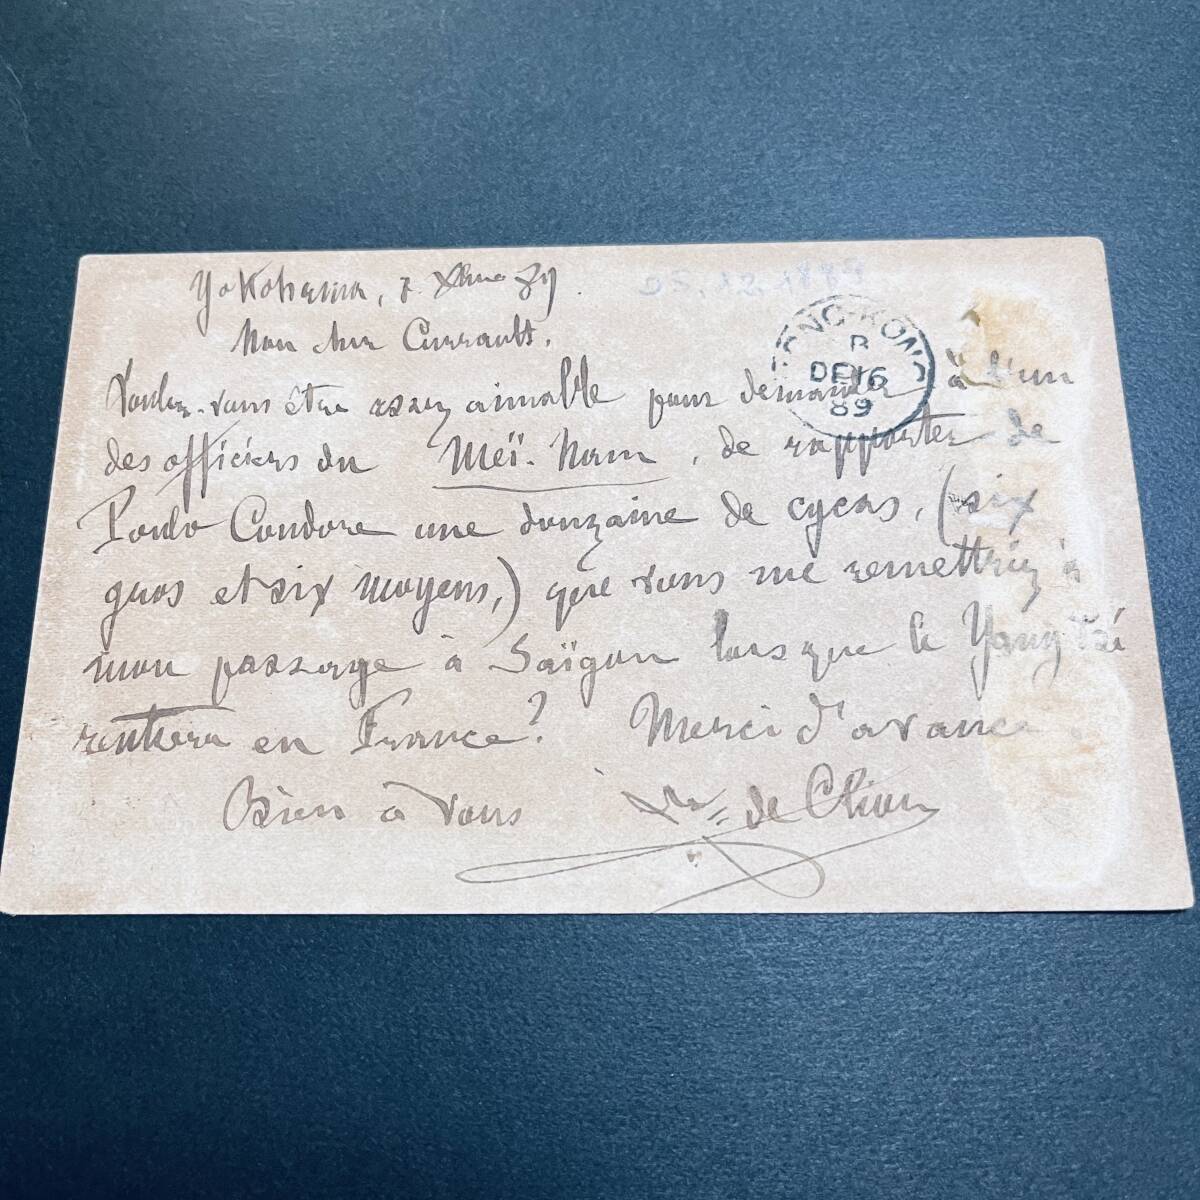 Yokohama, 7 Xbre 89.
05.12.1889
HONG-KONG
B
DE 16
89
Mon cher Currault,
Voulez-vous être assez aimable pour demander à l'un
des officiers du Meï-Nam, de rapporter de
Poulo Condore une douzaine de cycas, (six
gros et six moyens,) que vous me remettriez à
mon passage à Saïgon lorsque le Yang Tsé
rentrera en France? Merci d'avance.
Bien à vous
de